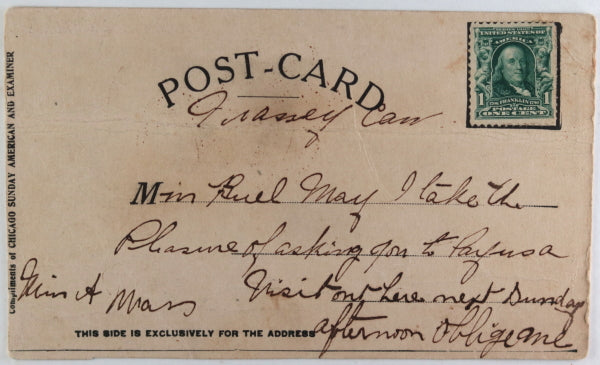 Compliments of CHICAGO SUNDAY AMERICAN AND EXAMINER
POST-CARD
UNITED STATES OF
AMERICA
1 FRANKLIN 1
POSTAGE
ONE CENT
Miss Buel May I take the
Pleasure of asking you to Pay us a
Visit out here next Sunday
afternoon Oblige me
Miss A Mars
THIS SIDE IS EXCLUSIVELY FOR THE ADDRESS